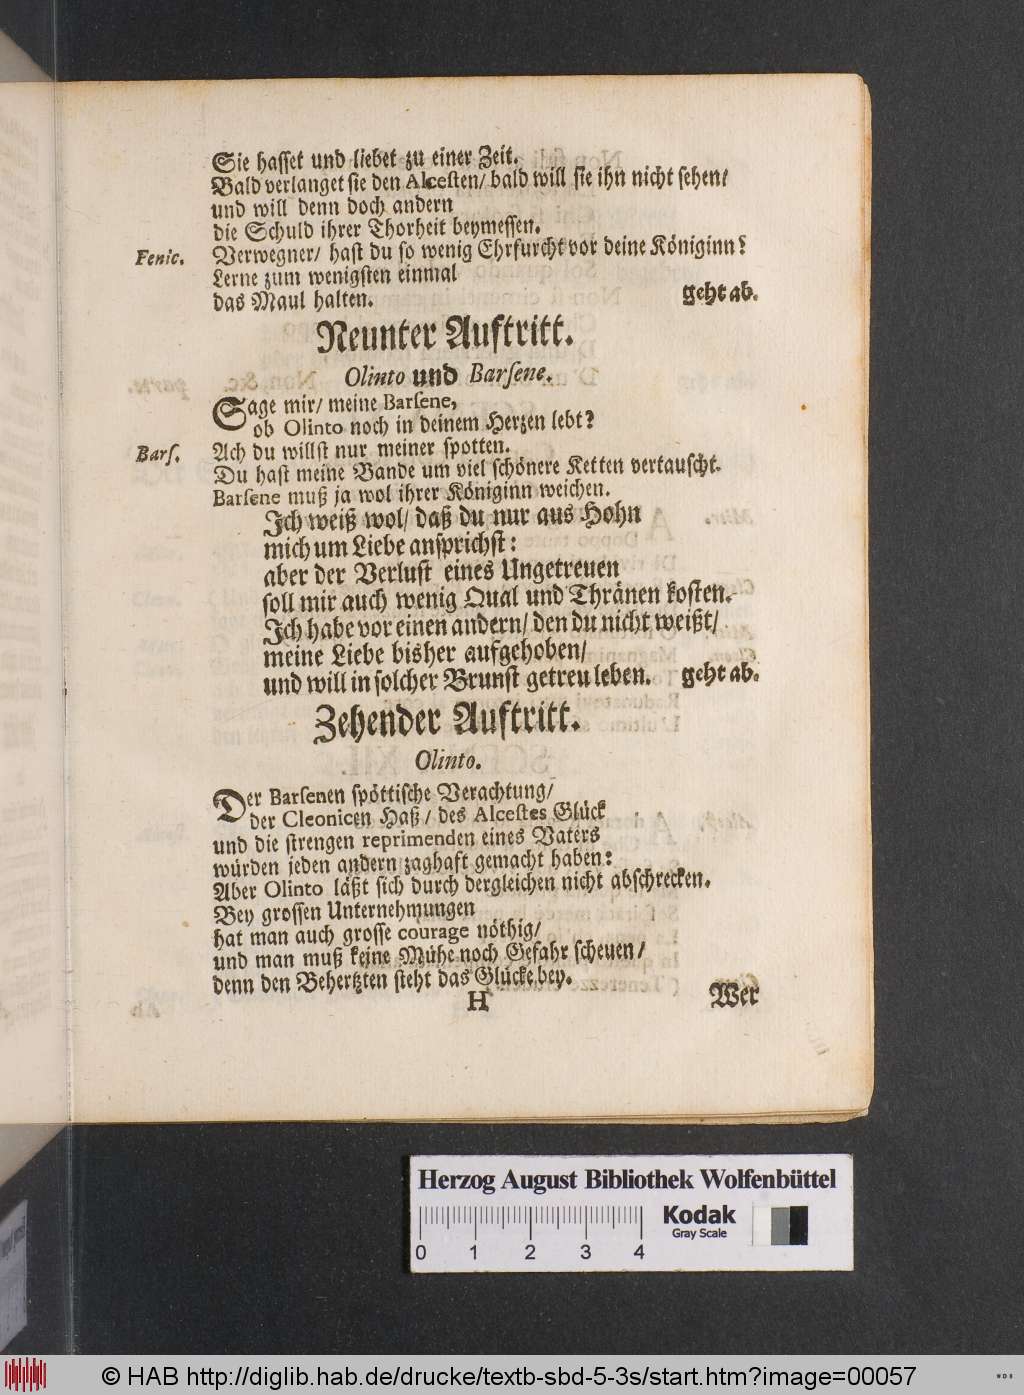 Sie hasset und liebet zu einer Zeit.
Bald verlanget sie den Alcesten/ bald will sie ihn nicht sehen/
und will denn doch andern
die Schuld ihrer Thorheit beymessen.
Fenic. Verwegner/ hast du so wenig Ehrfurcht vor deine Königinn?
Lerne zum wenigsten einmal
das Maul halten. geht ab.
Neunter Auftritt.
Olinto und Barsene.
Sage mir/ meine Barsene,
ob Olinto noch in deinem Herzen lebt?
Bars. Ach du willst nur meiner spotten.
Du hast meine Bande um viel schönere Ketten vertauscht.
Barsene muß ja wol ihrer Königinn weichen.
Ich weiß wol/ daß du nur aus Hohn
mich um Liebe ansprichst:
aber der Verlust eines Ungetreuen
soll mir auch wenig Qual und Thränen kosten.
Ich habe vor einen andern/ den du nicht weißt/
meine Liebe bisher aufgehoben/
und will in solcher Brunst getreu leben. geht ab.
Zehender Auftritt.
Olinto.
Der Barsenen spöttische Verachtung/
der Cleonicen Haß/ des Alcestes Glück
und die strengen reprimenden eines Vaters
würden jeden andern zaghaft gemacht haben:
Aber Olinto läßt sich durch dergleichen nicht abschrecken.
Bey grossen Unternehmungen
hat man auch grosse courage nöthig/
und man muß keine Mühe noch Gefahr scheuen/
denn den Behertzten steht das Glücke bey.
H Wer
Herzog August Bibliothek Wolfenbüttel
Kodak
Gray Scale
0 1 2 3 4
© HAB http://diglib.hab.de/drucke/textb-sbd-5-3s/start.htm?image=00057